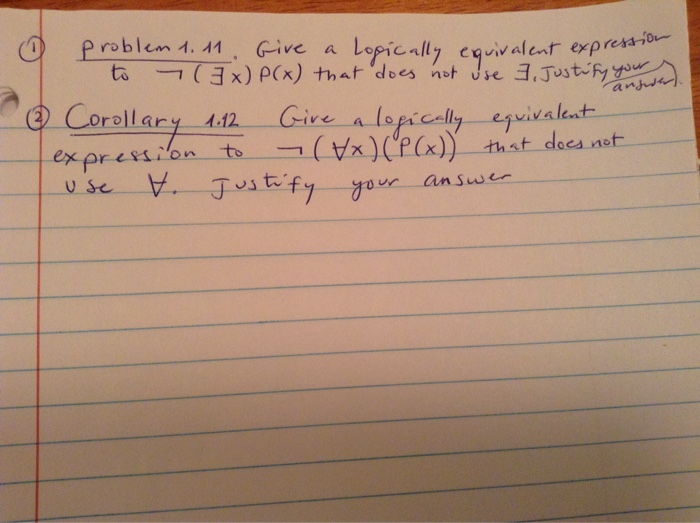 ① Problem 1.11. Give a Logically equivalent expression
to ¬(∃x) P(x) that does not use ∃. Justify your answer.
② Corollary 1.12 Give a logically equivalent
expression to ¬(∀x)(P(x)) that does not
use ∀. Justify your answer